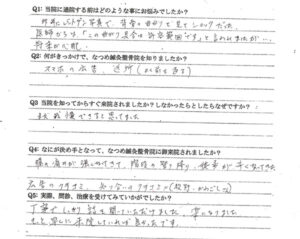 Q1: 当院に通院する前はどのような事にお悩みでしたか?
レントゲン写真で、背骨が曲がって見えてショックだった。
医師からは、「この曲がり具合は許容範囲です」と言われましたが…
将来が心配。
Q2: 何がきっかけで、なつめ鍼灸整骨院を知りましたか?
スマホの広告、近所
Q3 当院を知ってからすぐ来院されましたか?しなかったとしたらなぜですか?
まだ我慢できると思ってました
Q4: なにが決め手となって、なつめ鍼灸整骨院に御来院されましたか?
腰の痛みが強くなってきて、階段の登り降り、
広告のクチコミ、知り合いのクチコミ
Q5: 実際、問診、治療を受けてみていかがでしたか?
丁寧でしっかり話を聞いていただけました。楽になりました。
もっと早くに来院していれば良かったです。